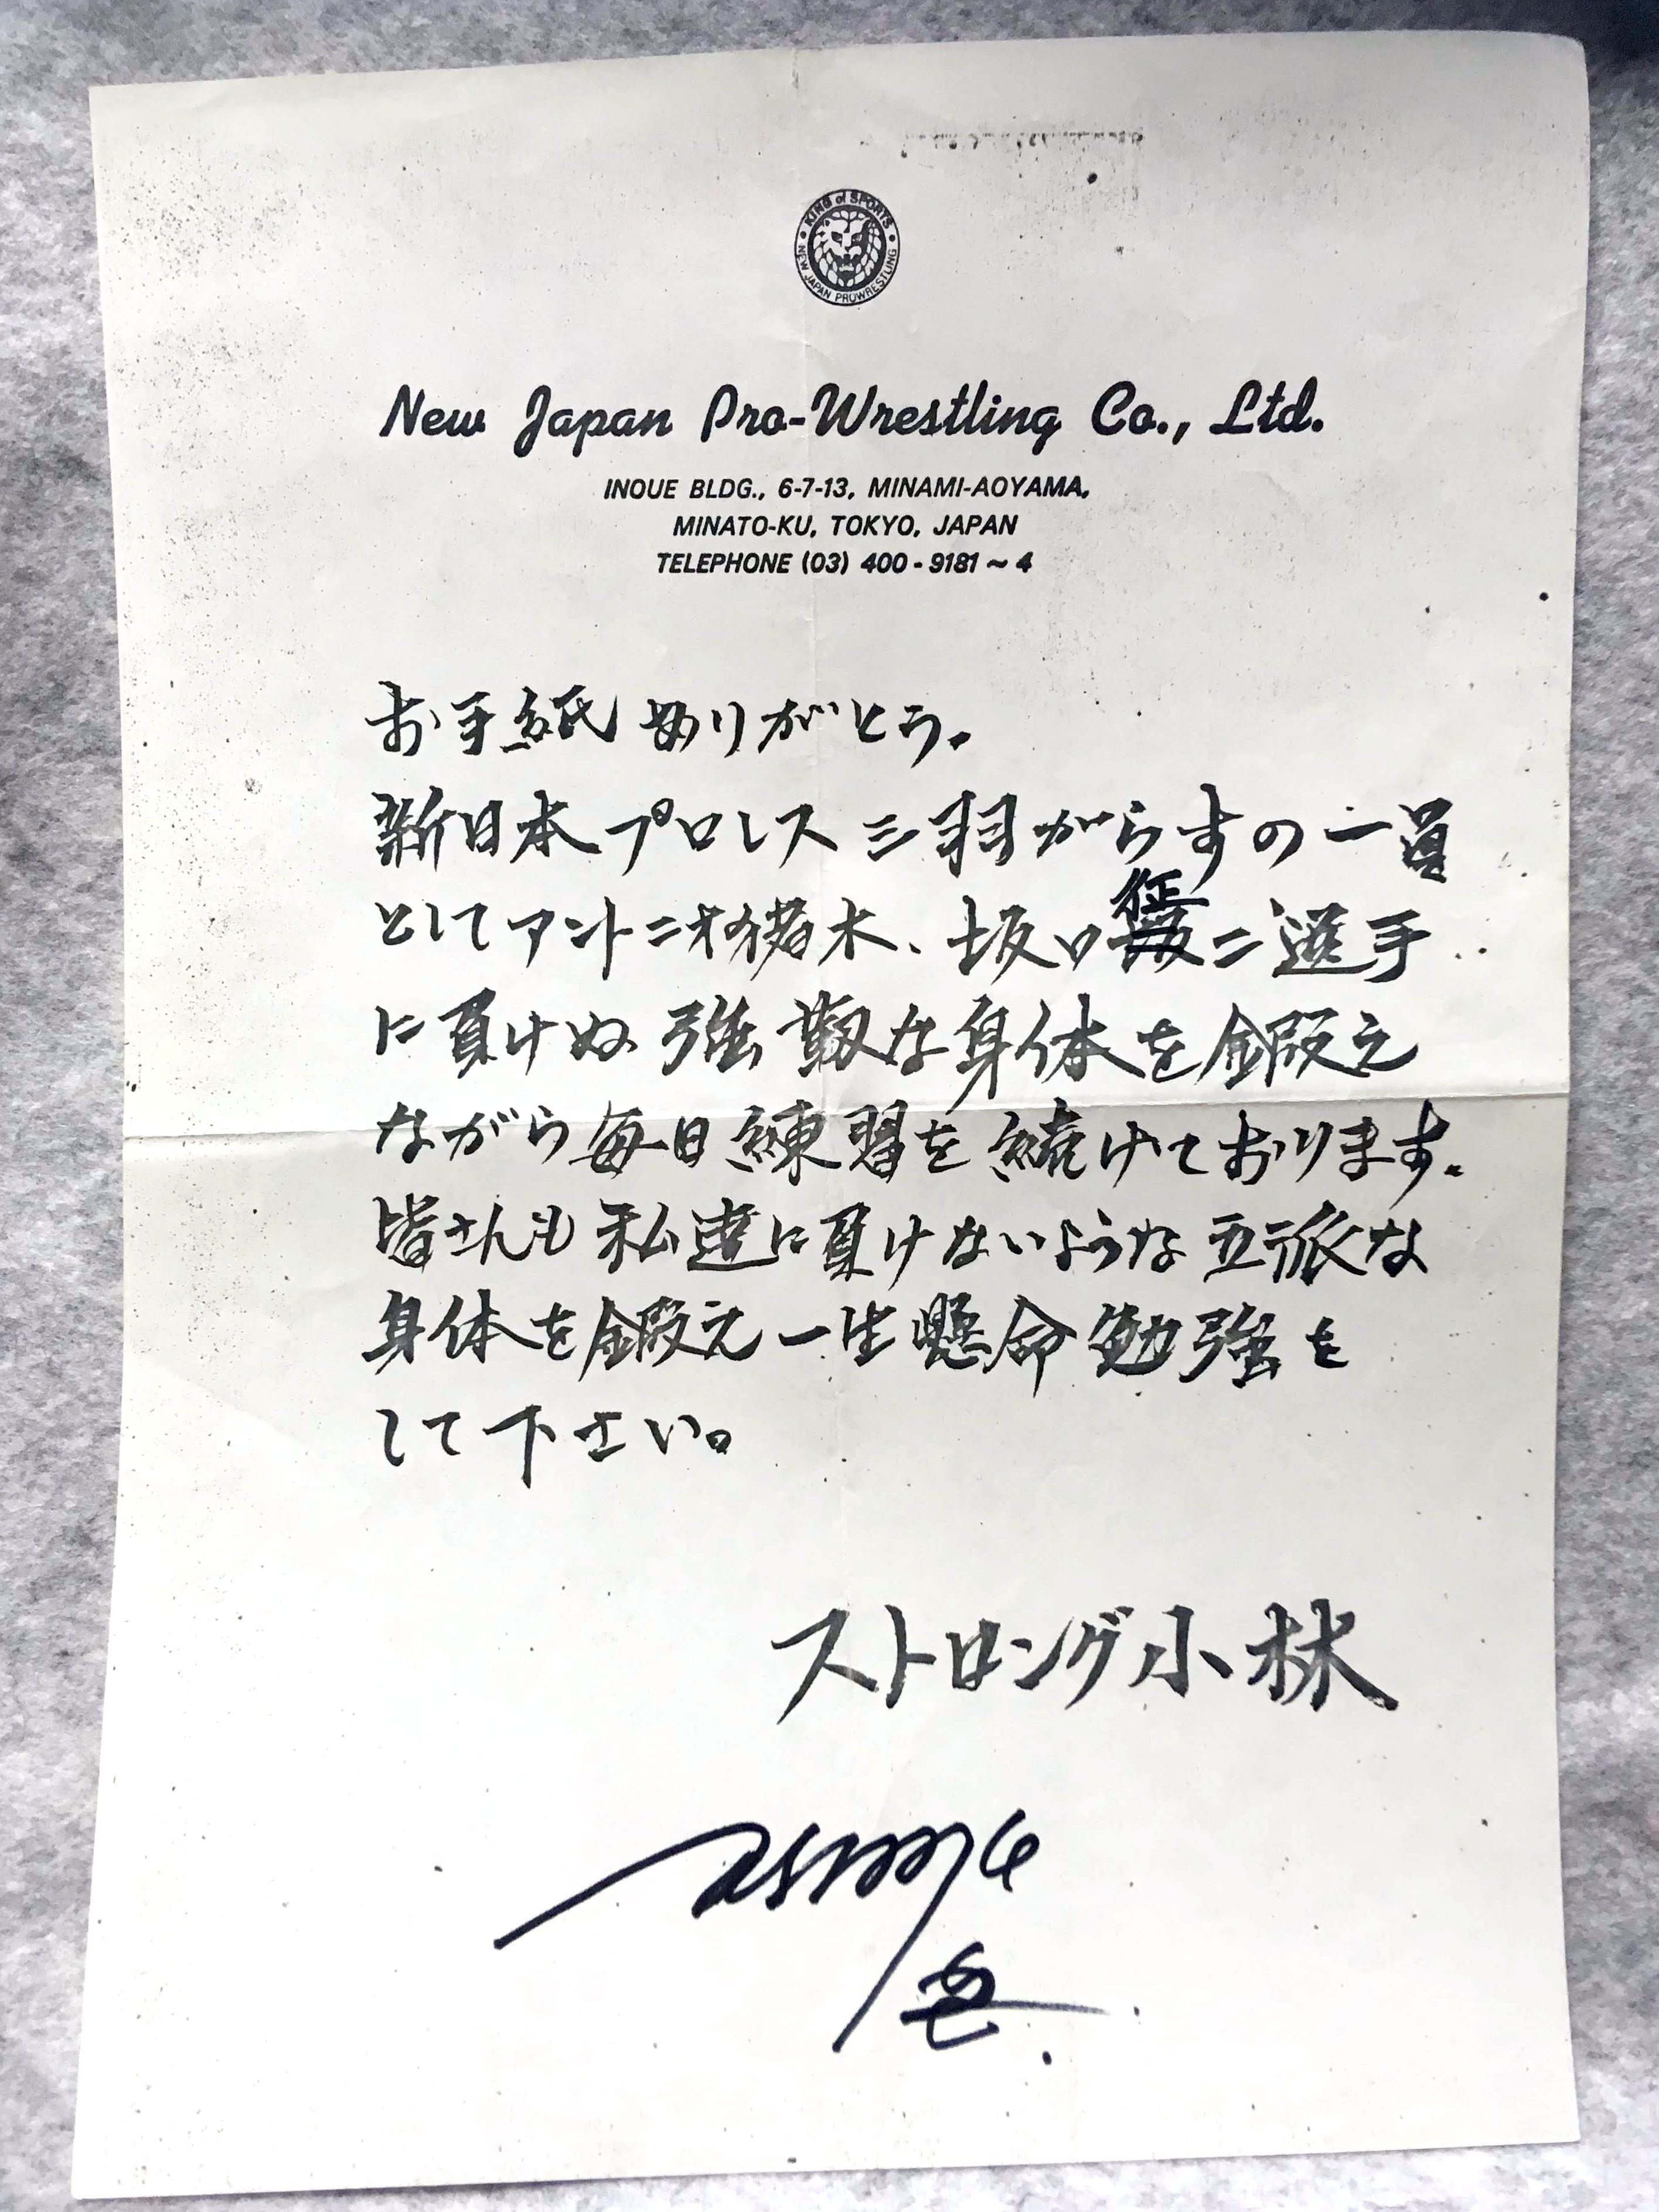 KING of SPORTS
NEW JAPAN PROWRESTLING
New Japan Pro-Wrestling Co., Ltd.
INOUE BLDG., 6-7-13, MINAMI-AOYAMA,
MINATO-KU, TOKYO, JAPAN
TELEPHONE (03) 400-9181~4
お手紙ありがとう。
新日本プロレス三羽がらすの一員
としてアントニオ猪木、坂口征二選手
に負けぬ強靭な身体を鍛え
ながら毎日練習を続けております。
皆さんも私達に負けないような立派な
身体を鍛え一生懸命勉強を
して下さい。
ストロング小林